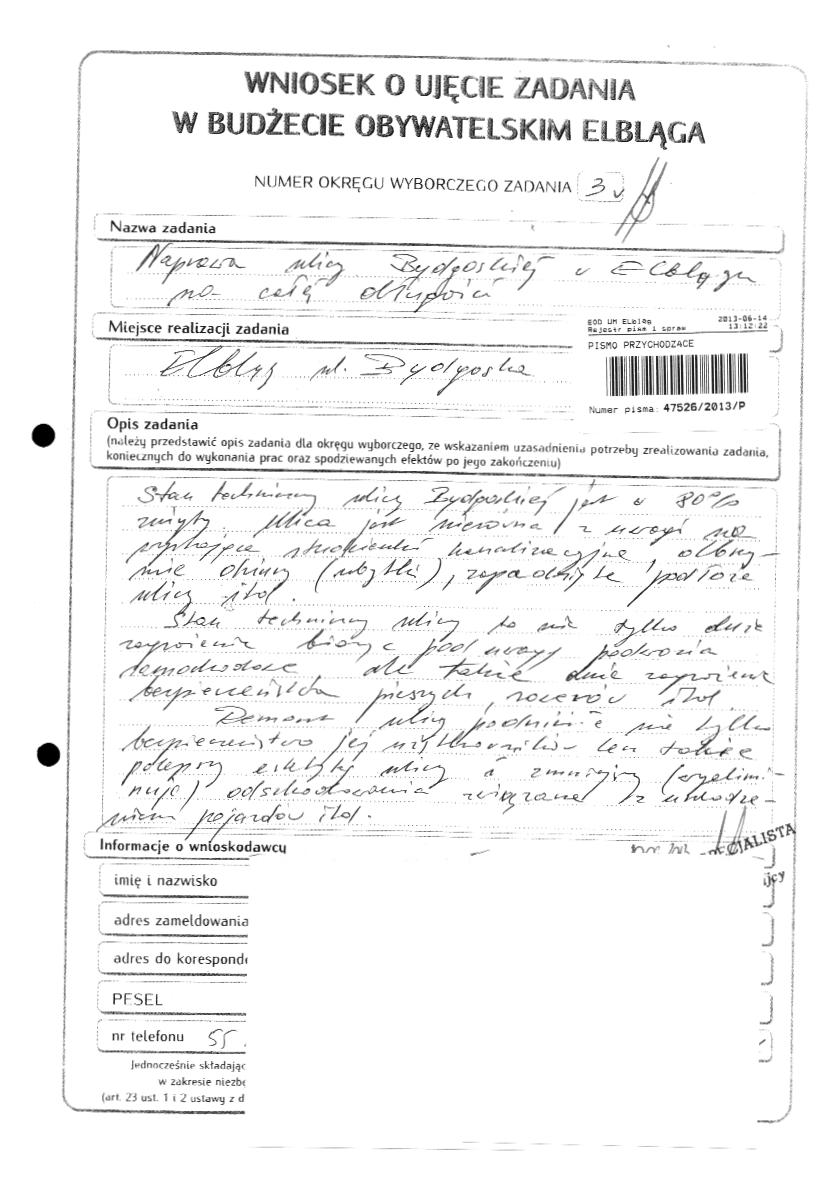 WNIOSEK O UJĘCIE ZADANIA
W BUDŻECIE OBYWATELSKIM ELBLĄGA
NUMER OKRĘGU WYBORCZEGO ZADANIA 3
Nazwa zadania
Naprawa ulicy Bydgoskiej w Elblągu
na całej długości
Miejsce realizacji zadania
EOD UM Elbląg 2013-06-14
Rejestr pism i spraw 13:12:22
PISMO PRZYCHODZĄCE
Elbląg ul. Bydgoska
Numer pisma: 47526/2013/P
Opis zadania
(należy przedstawić opis zadania dla okręgu wyborczego, ze wskazaniem uzasadnienia potrzeby zrealizowania zadania,
koniecznych do wykonania prac oraz spodziewanych efektów po jego zakończeniu)
Stan techniczny ulicy Bydgoskiej jest w 80%
zużyty. Ulica jest nierówna z uwagi na
wystające studzienki kanalizacyjne, olbrzy-
mie dziury (ubytki), zapadnięte podłoże
ulicy itd.
Stan techniczny ulicy to nie tylko duże
zagrożenie biorąc pod uwagę podwozia
samochodowe ale także duże zagrożenie
bezpieczeństwa pieszych, rowerów itd.
Remont ulicy podniesie nie tylko
bezpieczeństwo jej użytkowników lecz także
polepszy estetykę ulicy i zmniejszy (wyelimi-
nuje) odszkodowania związane z uszkodze-
niem pojazdów itd.
Informacje o wnioskodawcy
CJALISTA
imię i nazwisko
adres zameldowania
adres do koresponde
PESEL
nr telefonu 55
Jednocześnie składając
w zakresie niezbę
(art. 23 ust. 1 i 2 ustawy z d